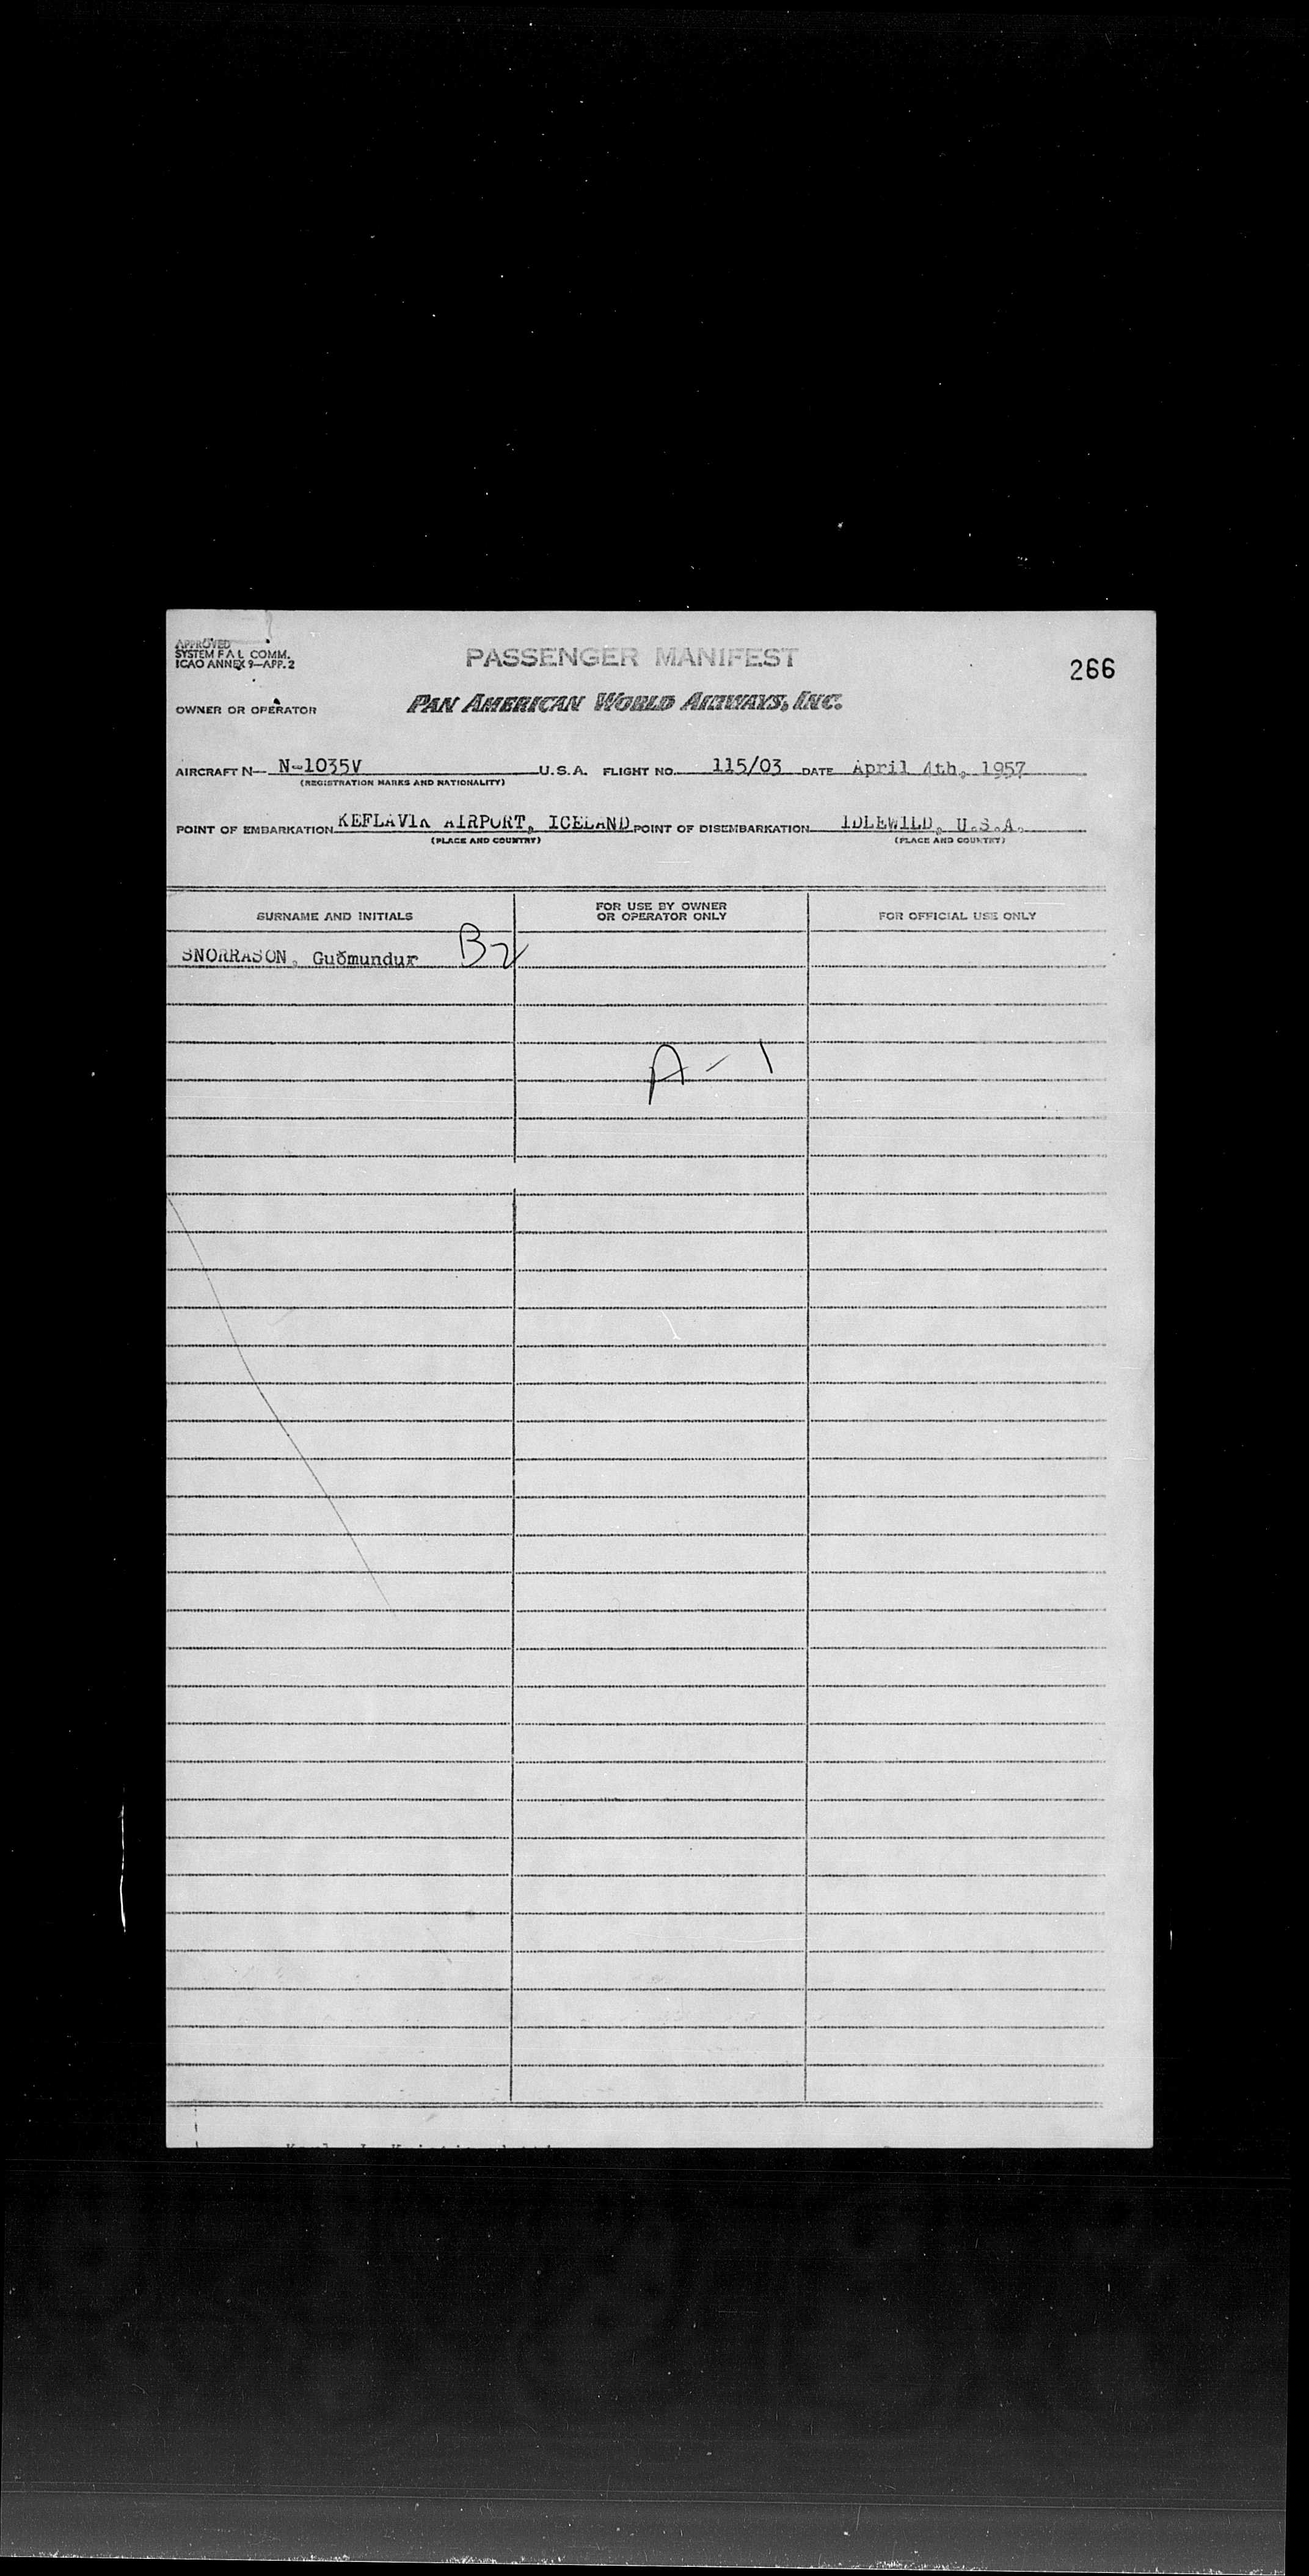 APPROVED
SYSTEM F A L COMM.
ICAO ANNEX 9—APP. 2
PASSENGER MANIFEST
266
OWNER OR OPERATOR PAN AMERICAN WORLD AIRWAYS, INC.
AIRCRAFT N— N-1035V U.S.A. FLIGHT NO. 115/03 DATE April 4th, 1957
(REGISTRATION MARKS AND NATIONALITY)
POINT OF EMBARKATION KEFLAVIK AIRPORT, ICELAND POINT OF DISEMBARKATION IDLEWILD, U.S.A.
(PLACE AND COUNTRY) (PLACE AND COUNTRY)
SURNAME AND INITIALS FOR USE BY OWNER OR OPERATOR ONLY FOR OFFICIAL USE ONLY
SNORRASON, Guðmundur B2
A - 1